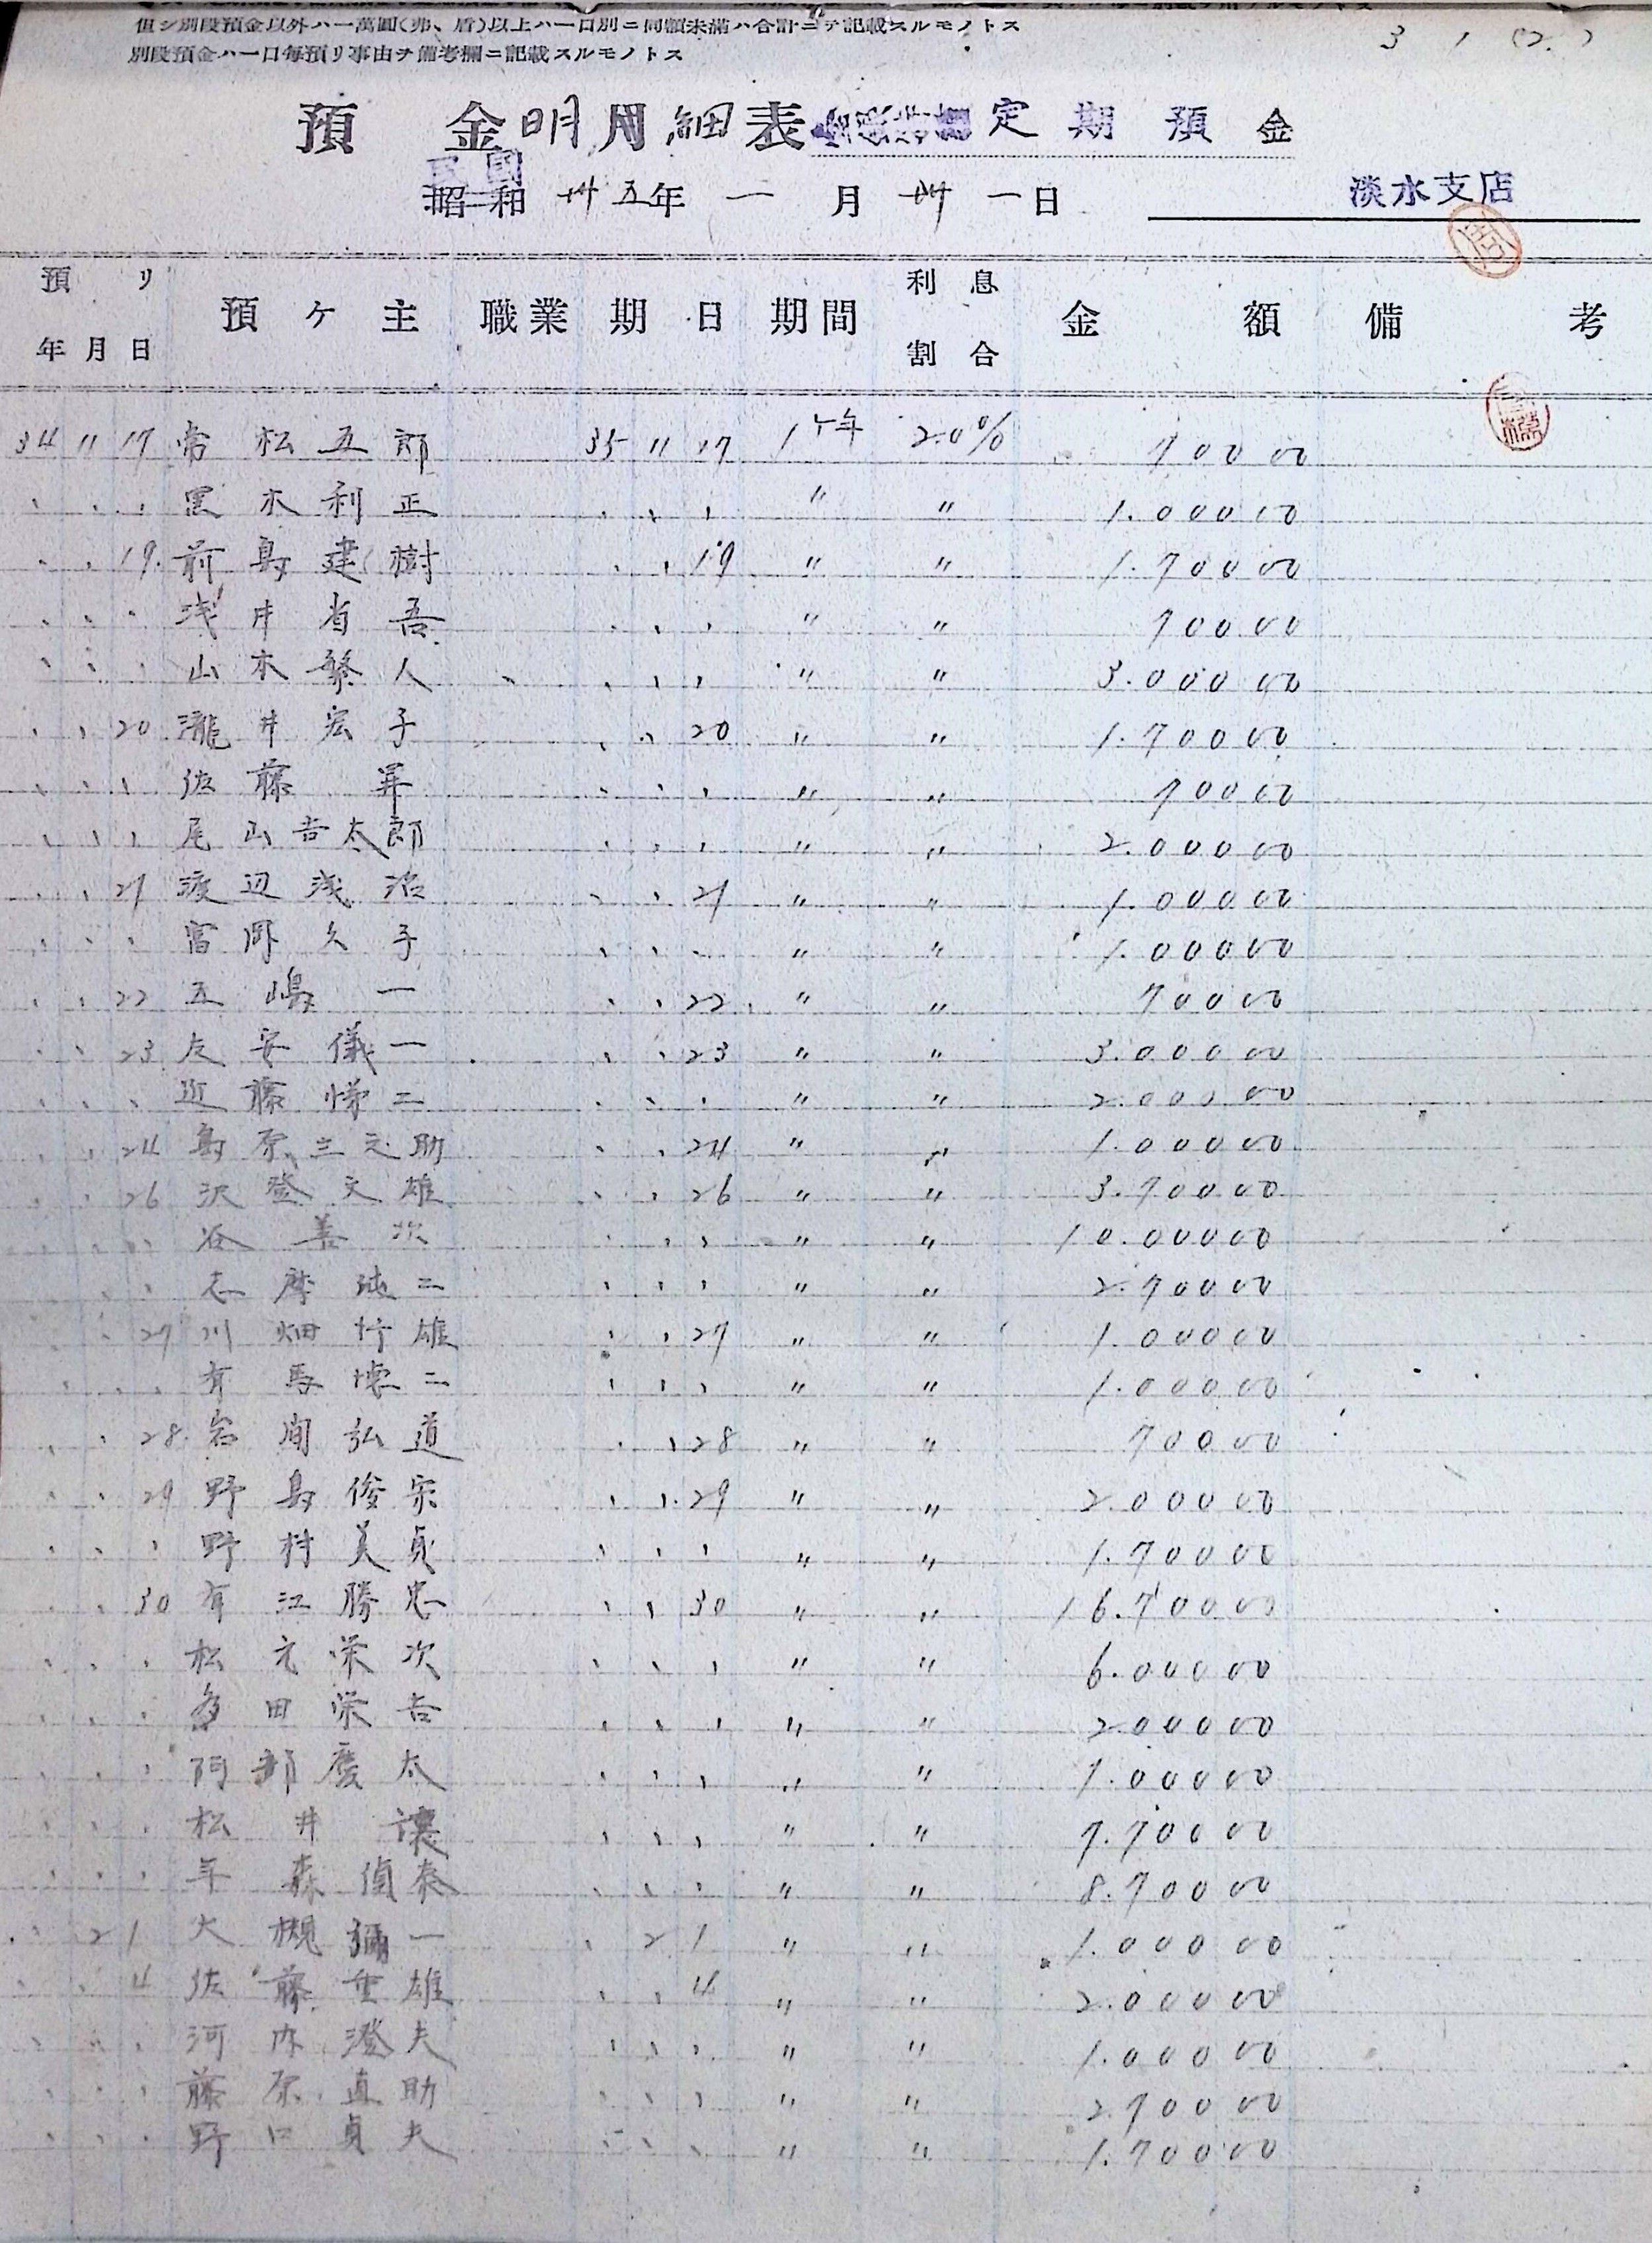 但シ別段預金以外ハ一萬圓(弗、盾)以上ハ一口別ニ同額未滿ハ合計ニテ記載スルモノトス
別段預金ハ一口毎預リ事由ヲ備考欄ニ記載スルモノトス
3 1 (2.)
預金明細表 定期預金
民國
昭和 卅五年 一月 卅一日 淡水支店
預リ年月日 預ケ主 職業 期日 期間 利息割合 金額 備考
34 11 17 常松五郎 35 11 17 1ヶ年 2.0% 700 00
、、、 黒木利正 、、、 〃 〃 1.000 00
、、19. 前島建樹 、、19 〃 〃 1.700 00
、、、 浅井省吾 、、、 〃 〃 700 00
、、、 山本繁人 、、、 〃 〃 3.000 00
、、20 瀧井宏子 、、20 〃 〃 1.700 00
、、、 佐藤昇 、、、 〃 〃 700 00
、、、 尾山吉太郎 、、、 〃 〃 2.000 00
、、21 渡辺浅治 、、21 〃 〃 1.000 00
、、、 富岡久子 、、、 〃 〃 1.000 00
、、22 五嶋一 、、22 〃 〃 700 00
、、23 友安儀一 、、23 〃 〃 3.000 00
、、、 近藤悌二 、、、 〃 〃 2.000 00
、、24 島原三之助 、、24 〃 〃 1.000 00
、、26 沢登文雄 、、26 〃 〃 3.700 00
、、、 谷善次 、、、 〃 〃 10.000 00
、、、 志摩 二 、、、 〃 〃 2.700 00
、、27 川畑 雄 、、27 〃 〃 1.000 00
、、、 有馬 二 、、、 〃 〃 1.000 00
、、28. 岩間弘道 、、28 〃 〃 700 00
、、29 野島俊宗 、、29 〃 〃 2.000 00
、、、 野村美貞 、、、 〃 〃 1.700 00
、、30 有江勝忠 、、30 〃 〃 16.700 00
、、、 松元栄次 、、、 〃 〃 6.000 00
、、、 多田栄吉 、、、 〃 〃 2.000 00
、、、 阿部慶太 、、、 〃 〃 1.000 00
、、、 松井讓 、、、 〃 〃 7.700 00
、、、 年森偵泰 、、、 〃 〃 8.700 00
、21 大槻彌一 、21 〃 〃 1.000 00
、、4 佐藤重雄 、、4 〃 〃 2.000 00
、、、 河内澄夫 、、、 〃 〃 1.000 00
、、、 藤原直助 、、、 〃 〃 2.700 00
、、、 野口貞夫 、、、 〃 〃 1.700 00